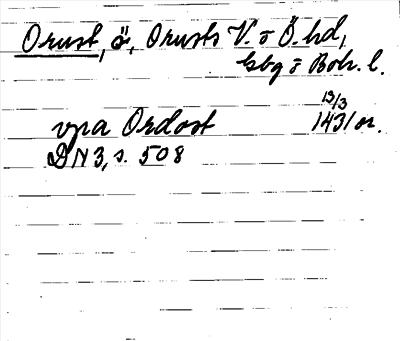 Orust, ö, Orusts V. o Ö. hd,
Gbg o Boh. l.
vpa Ordost 13/3 1431 or.
DN 3, s. 508